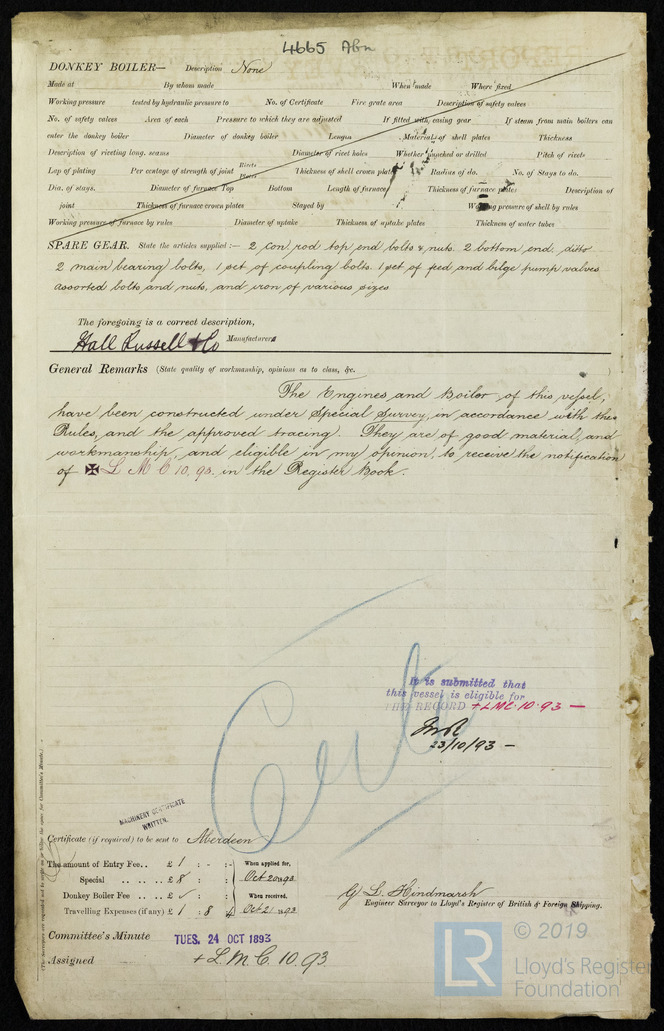 4665 Abn
DONKEY BOILER— Description None
Made at By whom made When made Where fixed
Working pressure tested by hydraulic pressure to No. of Certificate Fire grate area Description of safety valves
No. of safety valves Area of each Pressure to which they are adjusted If fitted with easing gear If steam from main boilers can
enter the donkey boiler Diameter of donkey boiler Length Material of shell plates Thickness
Description of riveting long. seams Diameter of rivet holes Whether punched or drilled Pitch of rivets
Lap of plating Per centage of strength of joint Rivets Plates Thickness of shell crown plates Radius of do. No. of Stays to do.
Dia. of stays. Diameter of furnace Top Bottom Length of furnace Thickness of furnace plates Description of
joint Thickness of furnace crown plates Stayed by Working pressure of shell by rules
Working pressure of furnace by rules Diameter of uptake Thickness of uptake plates Thickness of water tubes
SPARE GEAR. State the articles supplied:— 2 con rod top end bolts & nuts. 2 bottom end ditto
2 main bearing bolts, 1 set of coupling bolts. 1 set of feed and bilge pump valves
assorted bolts and nuts, and iron of various sizes
The foregoing is a correct description,
Hall Russell & Co Manufacturers
General Remarks (State quality of workmanship, opinions as to class, &c.
The Engines and Boiler of this vessel,
have been constructed under Special Survey, in accordance with the
Rules, and the approved tracing. They are of good material, and
workmanship, and eligible in my opinion, to receive the notification
of ✠ L M C 10.93. in the Register Book.
It is submitted that
this vessel is eligible for
THE RECORD + LMC 10.93 —
23/10/93 —
MACHINERY CERTIFICATE
WRITTEN.
Certificate (if required) to be sent to Aberdeen
The amount of Entry Fee.. £ 1 : - : - When applied for,
Special .. .. .. £ 8 : : Oct 20 1893
Donkey Boiler Fee .. .. £ : : When received,
Travelling Expenses (if any) £ 1 : 8 : 4 Oct 21 1893
G L Hindmarsh
Engineer Surveyor to Lloyd's Register of British & Foreign Shipping.
Committee's Minute TUES. 24 OCT 1893
Assigned + L.M.C. 10.93
(The Surveyors are requested not to write on or below the space for Committee's Minute.)
LR © 2019
Lloyd's Register
Foundation